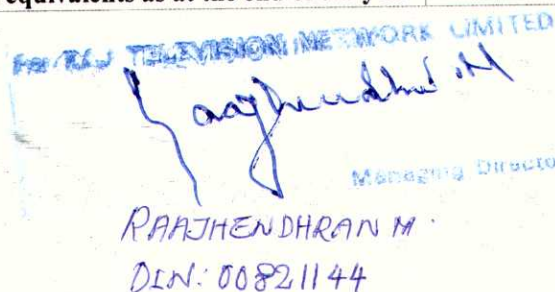 equivalents as at the end of
For RAJ TELEVISION NETWORK LIMITED
Raajhendhran .M
Managing Directo
RAAJHENDHRAN M.
DIN: 00821144